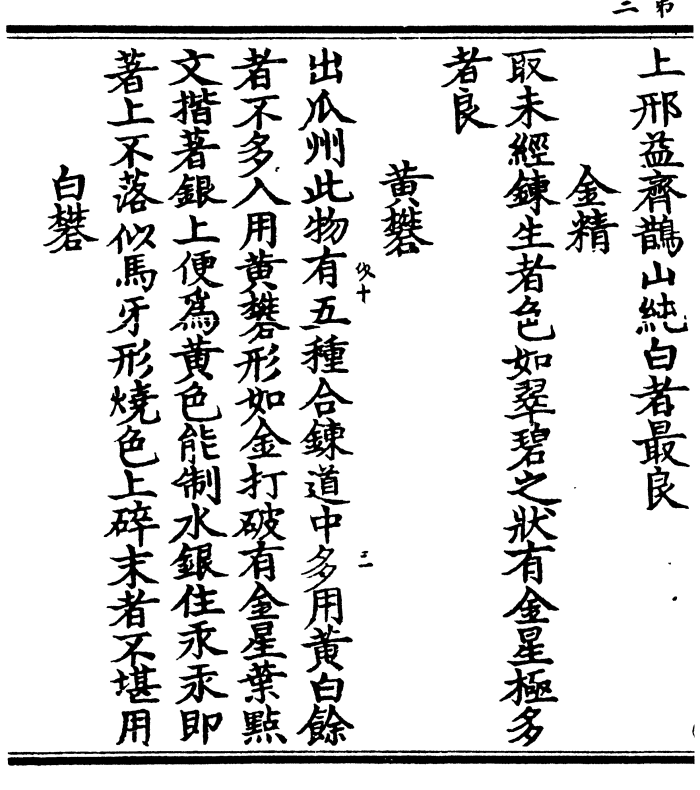 第二
上邢益齊鵲山純白者最良
金精
取未經鍊生者色如翠碧之狀有金星極多
者良
黃礬
出瓜州此物有五種合鍊道中多用黃白餘
者不多入用黃礬形如金打破有金星葉點
文揩著銀上便爲黃色能制水銀住汞汞即
著上不落似馬牙形燒色上碎末者不堪用
白礬
十
三